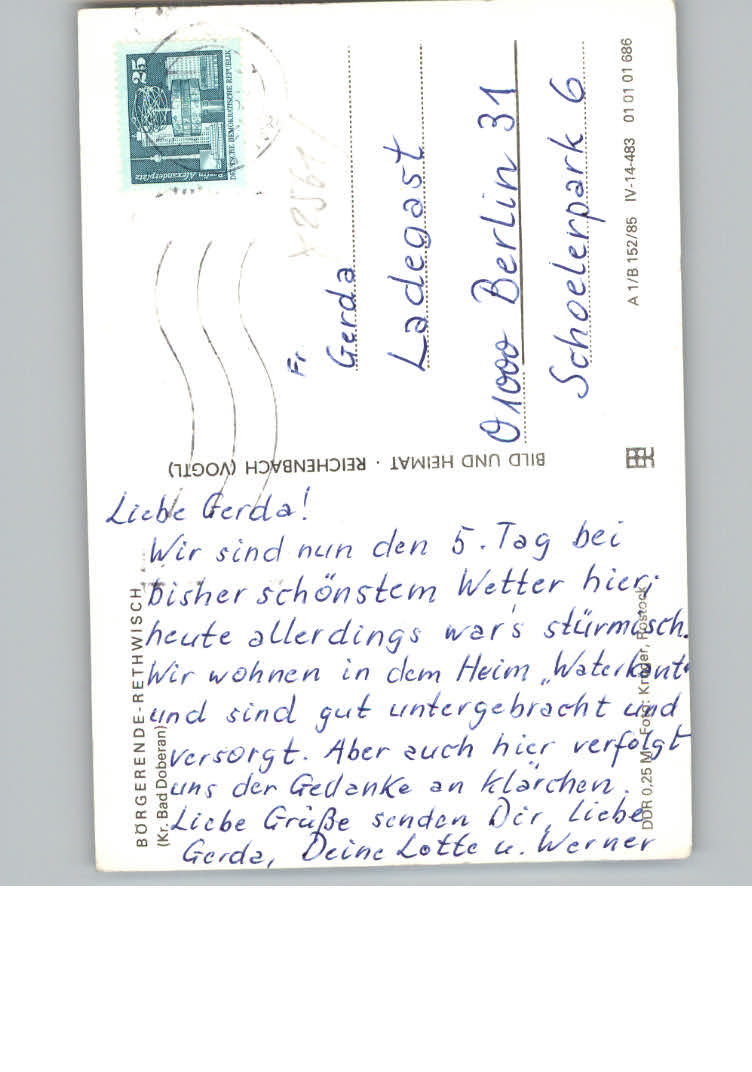 Liebe Gerda!
Wir sind nun den 5. Tag bei
bisher schönstem Wetter hier;
heute allerdings war's stürmisch.
Wir wohnen in dem Heim „Waterkant"
und sind gut untergebracht und
versorgt. Aber auch hier verfolgt
uns der Gedanke an Klärchen.
Liebe Grüße senden Dir, liebe
Gerda, Deine Lotte u. Werner
BÖRGERENDE-RETHWISCH
(Kr. Bad Doberan)
BILD UND HEIMAT · REICHENBACH (VOGTL)
DDR 0,25 M Foto: Krüger, Rostock
Fr.
Gerda
Ladegast
01000 Berlin 31
Schoelerpark 6
A 1/B 152/85 IV-14-483 01 01 01 686
25
Berlin, Alexanderplatz
DEUTSCHE DEMOKRATISCHE REPUBLIK